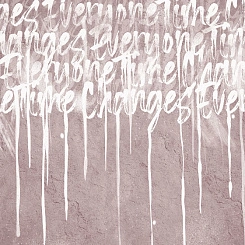 ges Everyone Time C
anges Everyone Tim
Everyone Time Chan
eTime Changes Eve